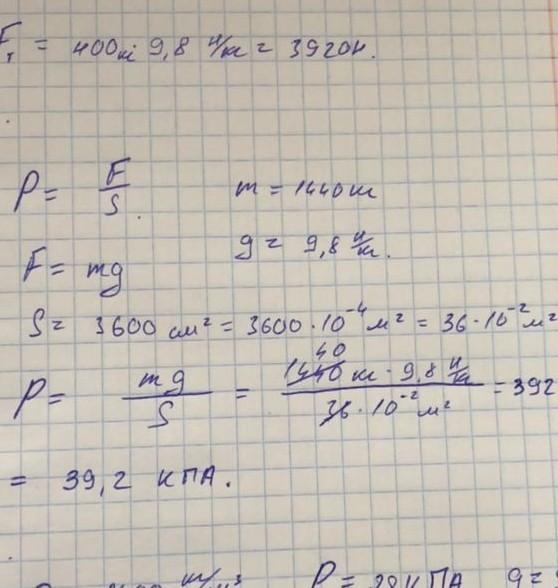 Fт = 400кг 9,8 н/кг = 3920н.
P = F/S. m = 1440кг
F = mg g = 9,8 н/кг.
S = 3600 см² = 3600·10⁻⁴ м² = 36·10⁻² м²
40
P = mg/S = 1440 кг · 9,8 н/кг / 36·10⁻² м² = 392
= 39,2 КПА.
P = КПА g =